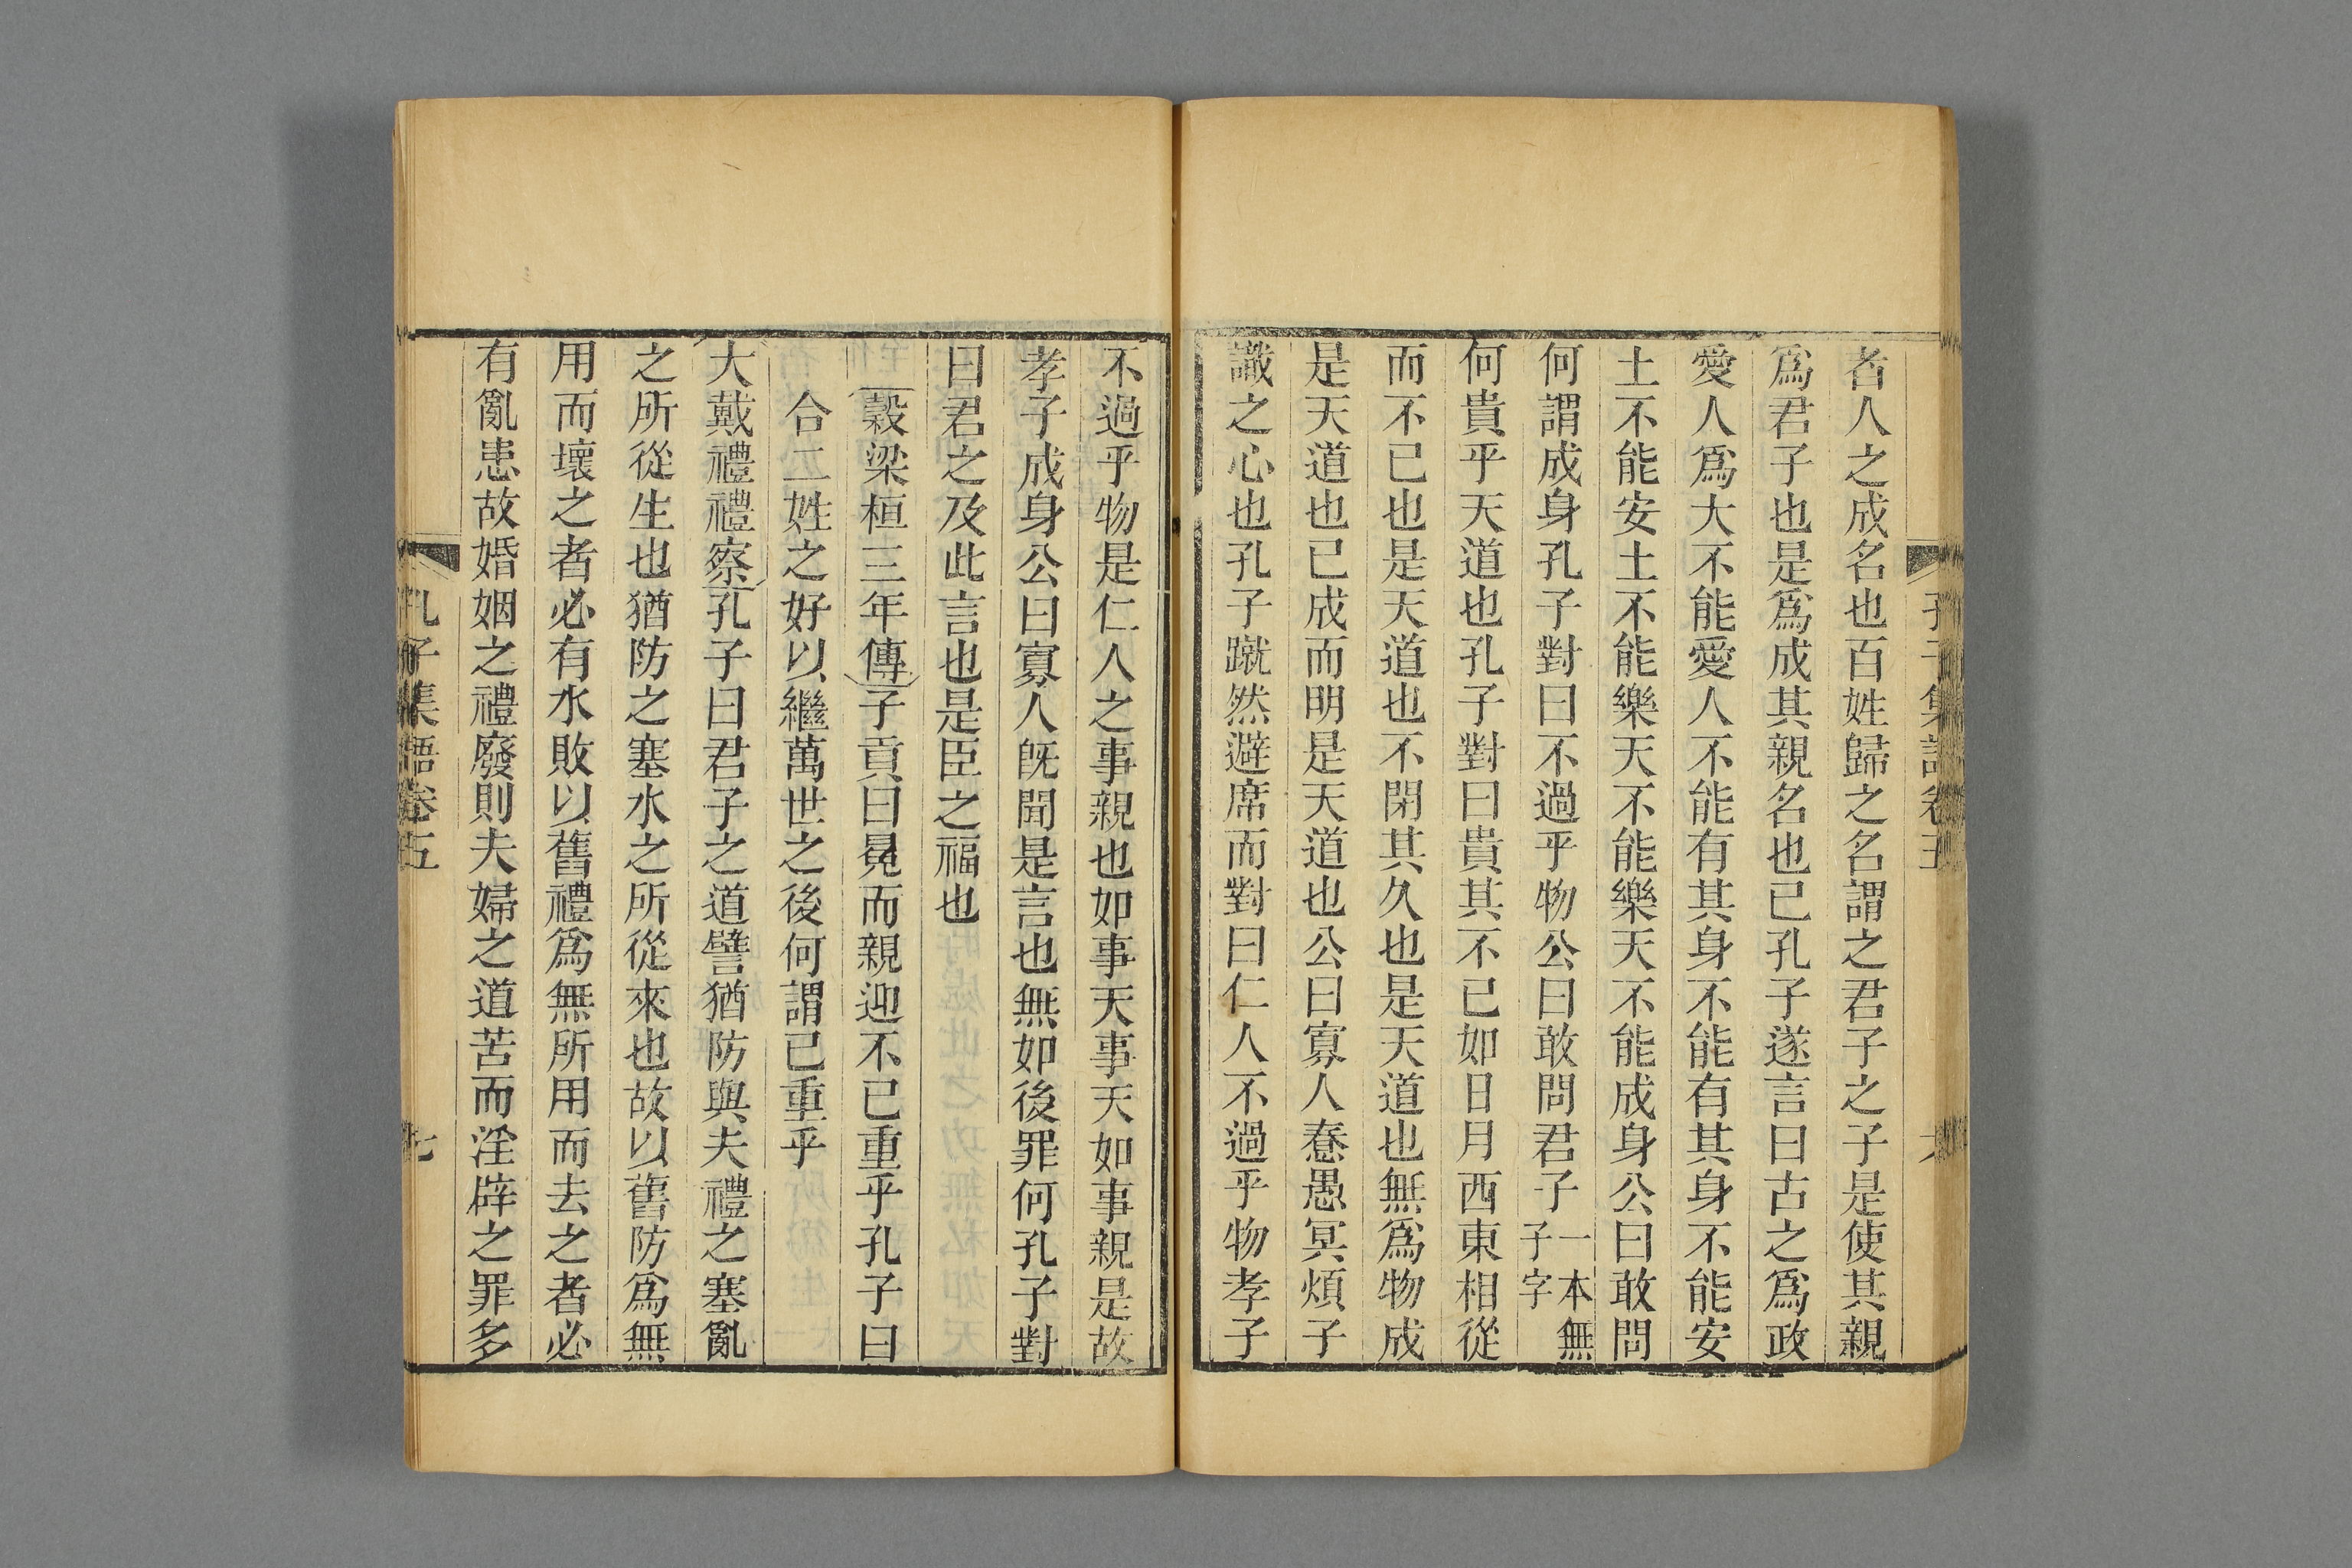 者人之成名也百姓歸之名謂之君子之子是使其親
爲君子也是爲成其親名也已孔子遂言曰古之爲政
愛人爲大不能愛人不能有其身不能有其身不能安
土不能安土不能樂天不能樂天不能成身公曰敢問
何謂成身孔子對曰不過乎物公曰敢問君子一本無子字
何貴乎天道也孔子對曰貴其不已如日月西東相從
而不已也是天道也不閉其久也是天道也無爲物成
是天道也已成而明是天道也公曰寡人惷愚冥煩子
識之心也孔子蹴然避席而對曰仁人不過乎物孝子
不過乎物是仁人之事親也如事天事天如事親是故
孝子成身公曰寡人旣聞是言也無如後罪何孔子對
曰君之及此言也是臣之福也
穀梁桓三年傳子貢曰冕而親迎不已重乎孔子曰
合二姓之好以繼萬世之後何謂已重乎
大戴禮禮察孔子曰君子之道譬猶防與夫禮之塞亂
之所從生也猶防之塞水之所從來也故以舊防爲無
用而壞之者必有水敗以舊禮爲無所用而去之者必
有亂患故婚姻之禮廢則夫婦之道苦而淫辟之罪多
孔子集語卷五
七